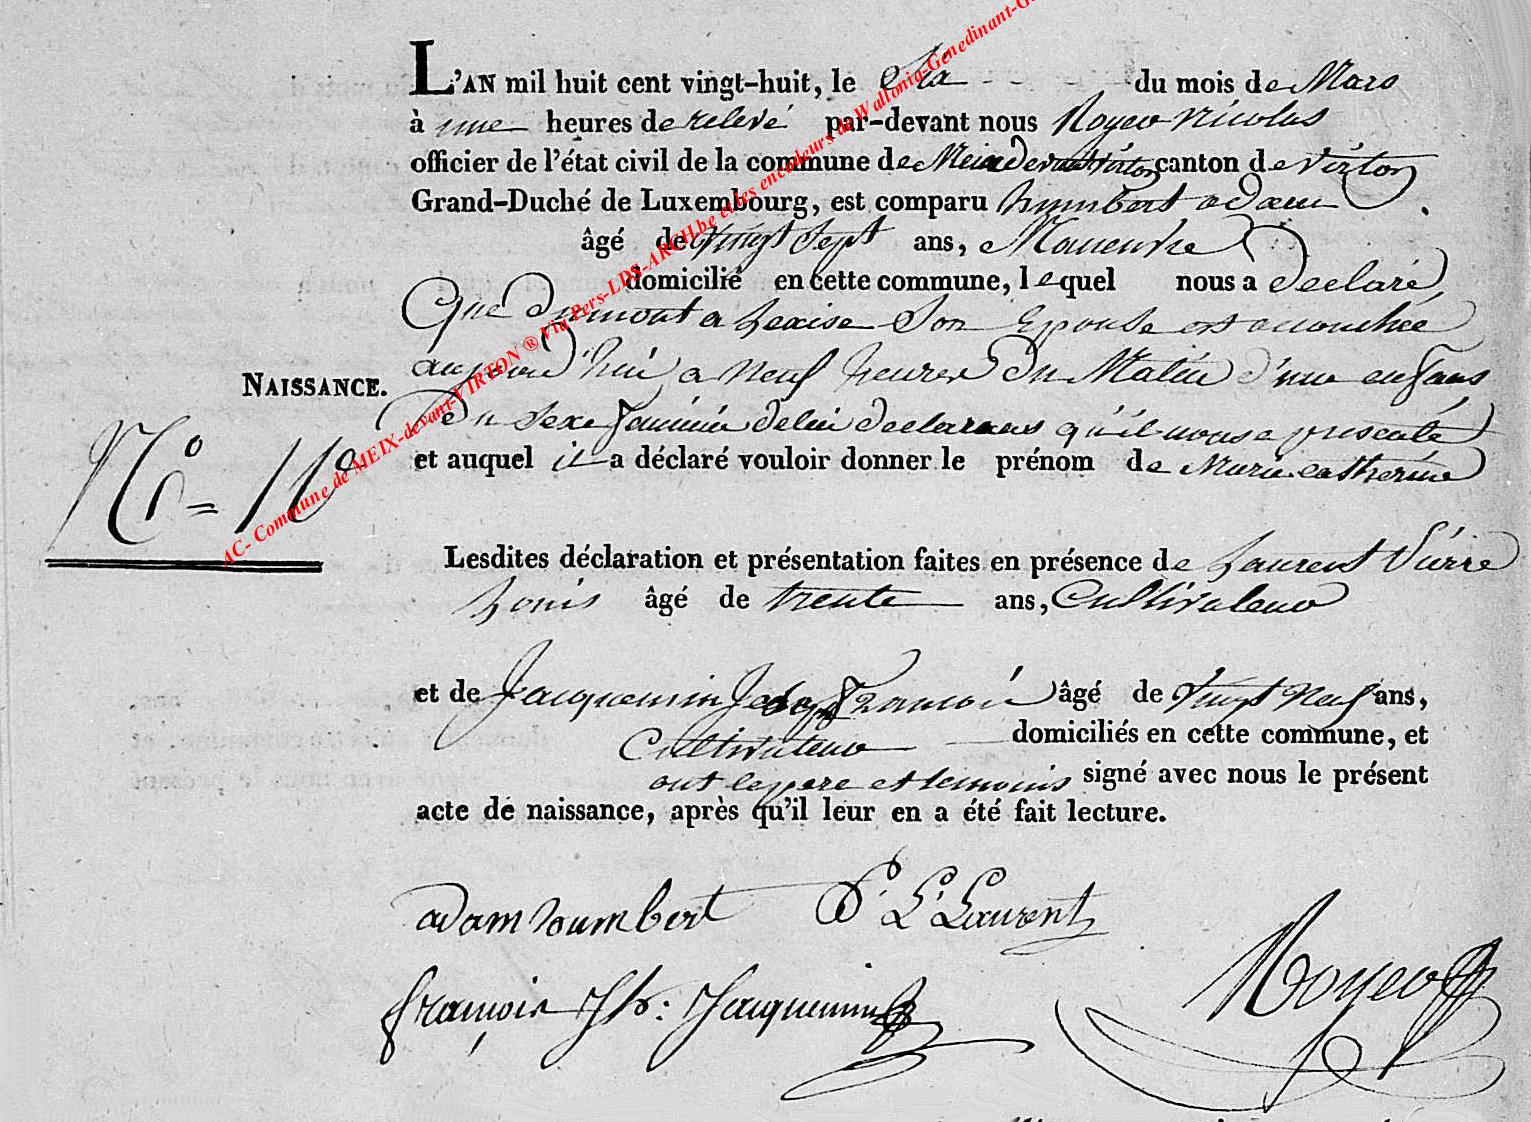 L'AN mil huit cent vingt-huit, le Six du mois de Mars
à une heures de relevé par-devant nous Royer Nicolas
officier de l'état civil de la commune de Meix devant virton canton de virton
Grand-Duché de Luxembourg, est comparu humbert adam
âgé de vingt sept ans, Maneuvre
domicilié en cette commune, lequel nous a declaré
Que Dumont a Lexise Son Epouse est accouchée
aujourd'hui a neuf heures du Matin d'une enfans
NAISSANCE.
Du Sexe feminin de lui declarans qu'il nous a presenté
et auquel il a déclaré vouloir donner le prénom de Marie catherine
No = 11e
Lesdites déclaration et présentation faites en présence de Laurent Pierre
Louis âgé de trente ans, Cultivateur
et de Jacquemin Jean François âgé de vingt neuf ans,
Cultivateur domiciliés en cette commune, et
ont le pere et temoins signé avec nous le présent
acte de naissance, après qu'il leur en a été fait lecture.
adam humbert P. L. Laurent
françois Jh: Jacquemin Royer
AC- Commune de MEIX-devant-VIRTON ® Via Pers-LDS-ARCH.be et les encodeurs de Wallonia-Genedinant-Ge